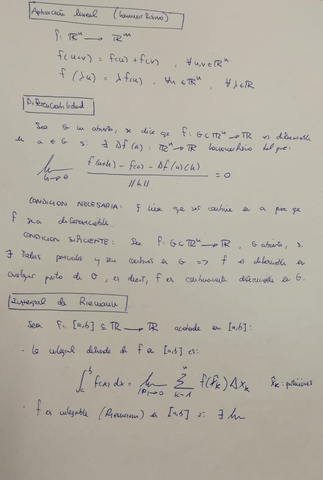 Aplicación lineal (homomorfismo)
f: ℝⁿ → ℝᵐ
f(u+v) = f(u) + f(v), ∀u,v∈ℝⁿ
f(λu) = λf(u), ∀u∈ℝⁿ, ∀λ∈ℝ
Diferenciabilidad
Sea G un abierto, se dice que f: G⊂ℝⁿ→ℝ es diferenciable
en a∈G si ∃ Df(a): ℝⁿ→ℝ homomorfismo tal que:
lim h→0 (f(a+h) - f(a) - Df(a)(h)) / ||h|| = 0
CONDICION NECESARIA: f tiene que ser continua en a para que
f sea diferenciable.
CONDICION SUFICIENTE: Sea f: G⊂ℝⁿ→ℝ, G abierto, si
∃ parciales y son continuas en G => f es diferenciable en
cualquier punto de G, es decir, f es continuamente diferenciable en G.
Integral de Riemann
Sea f: [a,b]⊆ℝ→ℝ acotada en [a,b]:
· La integral definida de f en [a,b] es:
∫ f(x)dx = lim |P|→0 Σ k=1 n f(ξk) Δxk ξk:
· f es integrable (Riemann) en [a,b] si ∃ lim